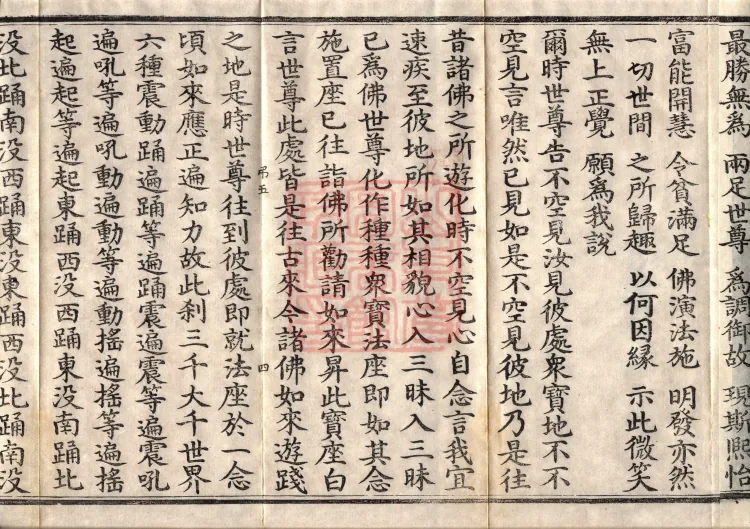 最勝無為 兩足世尊 為調御故 現斯熙怡
富能開慧 令貧滿足 佛演法施 明發亦然
一切世間 之所歸趣 以何因緣 示此微笑
無上正覺 願為我說
爾時世尊告不空見汝見彼處衆寶地不不
空見言唯然已見如是不空見彼地乃是往
昔諸佛之所遊化時不空見心自念言我宜
速疾至彼地所如其相貌心入三昧入三昧
已為佛世尊化作種種衆寶法座即如其念
施置座已往詣佛所勸請如來昇此寶座白
言世尊此處皆是往古來今諸佛如來遊踐
弔五 四
之地是時世尊往到彼處即就法座於一念
頃如來應正遍知力故此刹三千大千世界
六種震動踊遍踊等遍踊震遍震等遍震吼
遍吼等遍吼動遍動等遍動搖遍搖等遍搖
起遍起等遍起東踊西没西踊東没南踊北
没北踊南没西踊東没東踊西没北踊南没